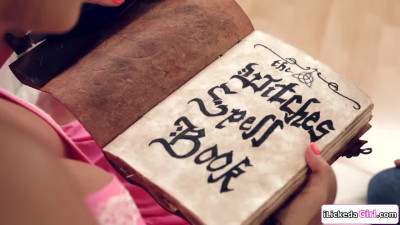 the
Witches
Spell
Book
iLickedaGirl.com